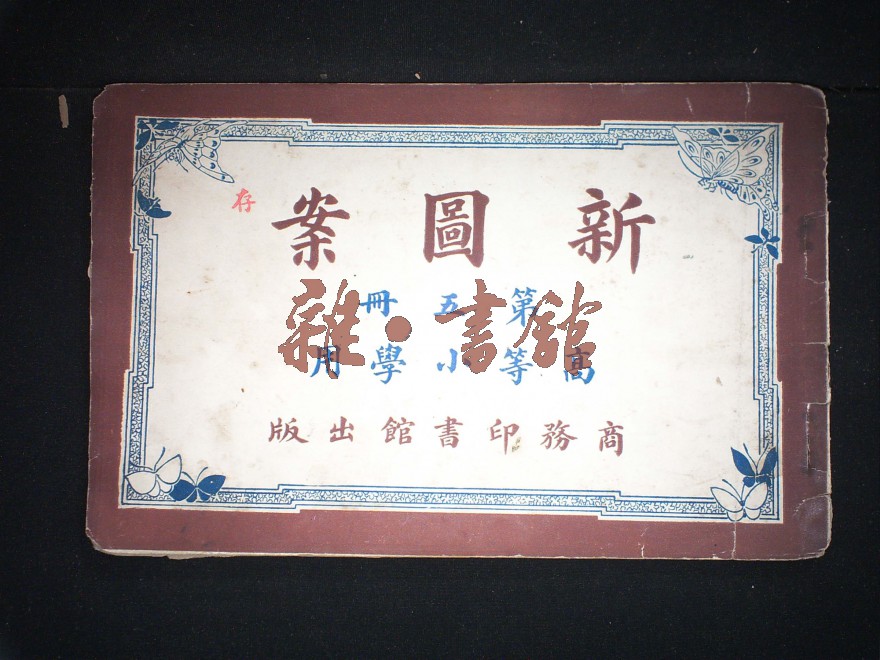 新圖案
存
第五冊
雜·書館
高等小學用
商務印書館出版